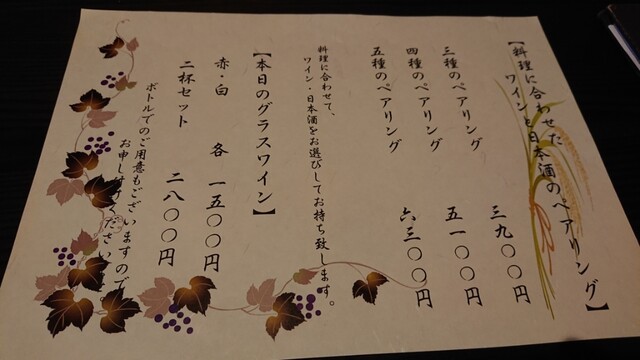 【料理に合わせた
ワインと日本酒のペアリング】
三種のペアリング 三九〇〇円
四種のペアリング 五一〇〇円
五種のペアリング 六三〇〇円
料理に合わせて、
ワイン・日本酒をお選びしてお持ち致します。
【本日のグラスワイン】
赤・白 各 一五〇〇円
二杯セット 二八〇〇円
ボトルでのご用意もございますので
お申し付けください